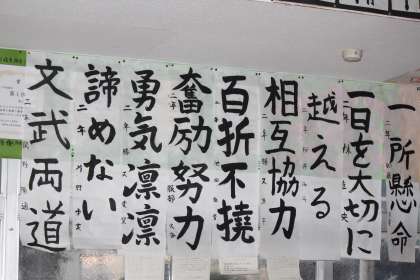 一所懸命
一日を大切に
越える
相互協力
百折不撓
奮励努力
勇気凛凛
諦めない
文武両道